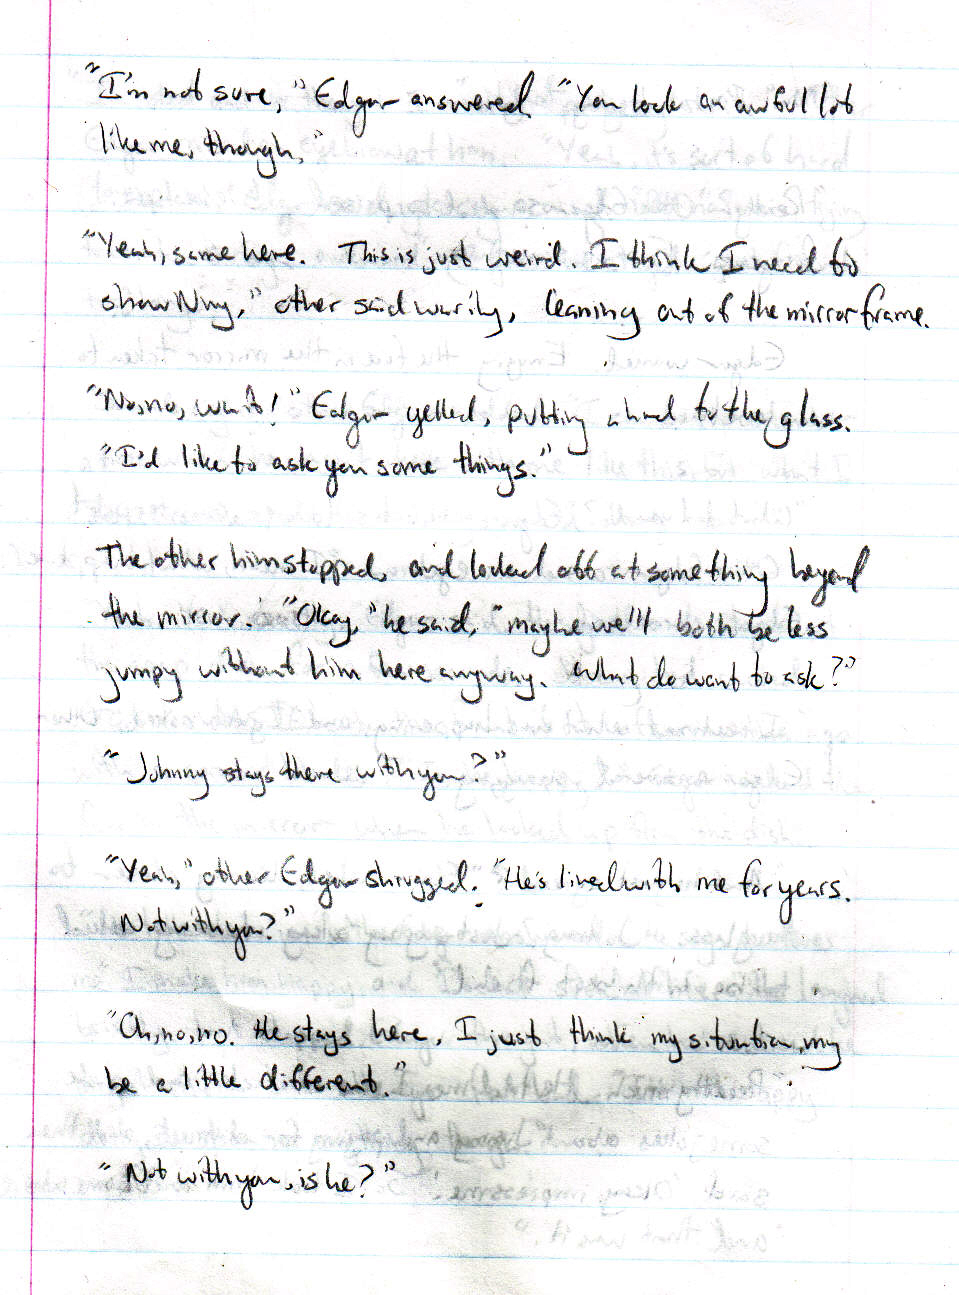 "I'm not sure," Edgar answered. "You look an awful lot
like me, though."
"Yeah, same here. This is just weird. I think I need to
show Nny," other said warily, leaning out of the mirror frame.
"No, no, wait!" Edgar yelled, putting a hand to the glass.
"I'd like to ask you some things."
The other him stopped, and looked off at something beyond
the mirror. "Okay," he said, "maybe we'll both be less
jumpy without him here anyway. What do want to ask?"
"Johnny stays there with you?"
"Yeah," other Edgar shrugged. "He's lived with me for years.
Not with you?"
"Oh, no, no. He stays here, I just think my situation my
be a little different."
"Not with you, is he?"